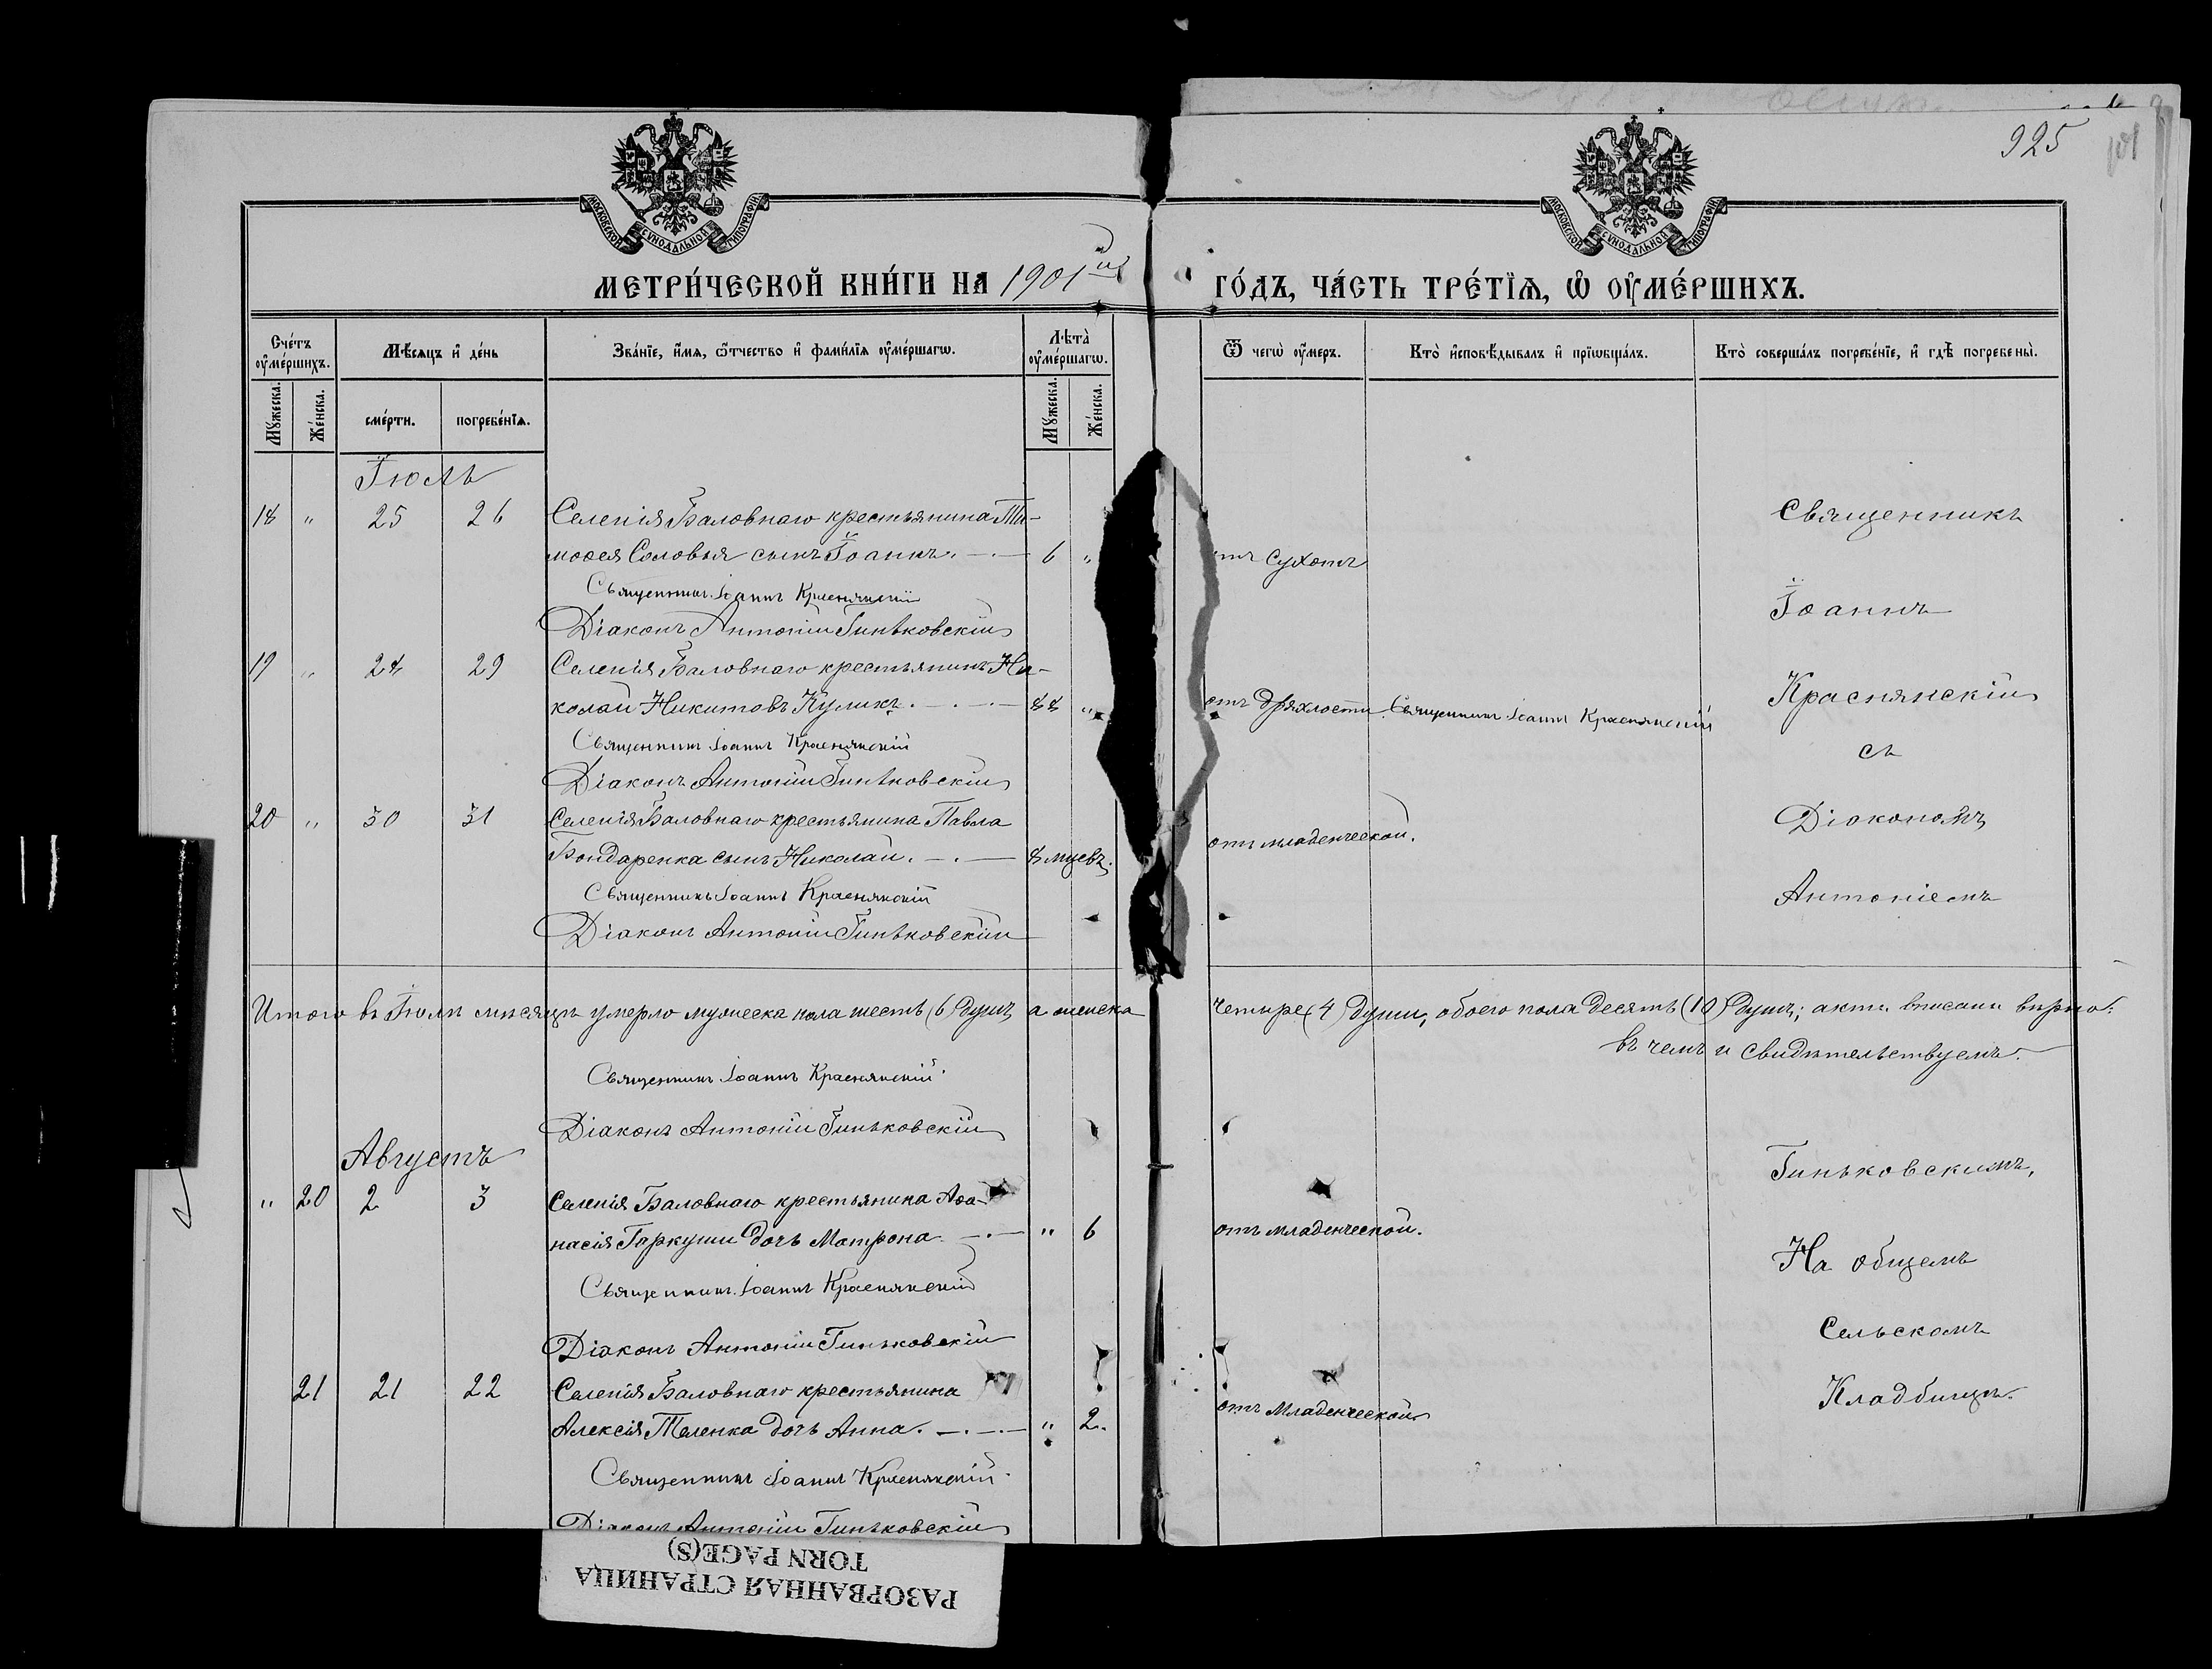 925
МОСКОВСКОЙ СѴНОДАЛЬНОЙ ТИПОГРАФІИ
МОСКОВСКОЙ СѴНОДАЛЬНОЙ ТИПОГРАФІИ
МЕТРИ́ЧЕСКОЙ КНИ́ГИ НА 1901 ГО́ДЪ, ЧА́СТЬ ТРЕ́ТЇѦ, Ѡ҆ ОУ҆МЕ́РШИХЪ.
Сче́тъ оу҆ме́ршихъ.
Мѣ́сяцъ и҆ де́нь
Зва́нїе, и҆́мя, ѻ҆́тчество и҆ фами́лїя оу҆ме́ршагѡ.
Лѣ́та оу҆ме́ршагѡ.
Ѿ чегѡ̀ оу҆́меръ.
Кто̀ и҆сповѣ́дывалъ и҆ прїѡбща́лъ.
Кто̀ соверша́лъ погребе́нїе, и҆ гдѣ̀ погребены̀.
Мꙋ́жеска. Же́нска. сме́рти. погребе́нїѧ. Мꙋ́жеска. Же́нска.
Іюль
18 " 25 26 Селенія Баловнаго крестьянина Ти-
мофея Соловья сынъ Іоаннъ. 6 " отъ сухотъ
Священникъ Іоаннъ Краснянскій
Діаконъ Антоній Гиньковскій
19 " 28 29 Селенія Баловнаго крестьянинъ Ни-
колай Никитовъ Куликъ. 88 " отъ дряхлости. Священникъ Іоаннъ Краснянскій
Священникъ Іоаннъ Краснянскій
Діаконъ Антоній Гиньковскій
20 " 30 31 Селенія Баловнаго крестьянина Павла
Бондаренка сынъ Николай. 8 мцевъ. отъ младенческой.
Священникъ Іоаннъ Краснянскій
Діаконъ Антоній Гиньковскій
Священникъ
Іоаннъ
Краснянскій
съ
Діакономъ
Антоніемъ
Итого въ Іюлѣ мѣсяцѣ умерло мужеска пола шесть (6) душъ, а женска четыре (4) души, обоего пола десять (10) душъ; акты вписаны вѣрно:
въ чемъ и свидѣтельствуемъ.
Священникъ Іоаннъ Краснянскій.
Діаконъ Антоній Гиньковскій
Августъ
" 20 2 3 Селенія Баловнаго крестьянина Аѳа-
насія Гаркуши дочь Матрона. " 6 отъ младенческой.
Священникъ Іоаннъ Краснянскій
Діаконъ Антоній Гиньковскій
21 21 22 Селенія Баловнаго крестьянина
Алексія Теленка дочь Анна. " 2. отъ младенческой
Священникъ Іоаннъ Краснянскій.
Діаконъ Антоній Гиньковскій
Гиньковскимъ,
На общемъ
Сельскомъ
Кладбищѣ.
РАЗОРВАННАЯ СТРАНИЦА
TORN PAGE(S)